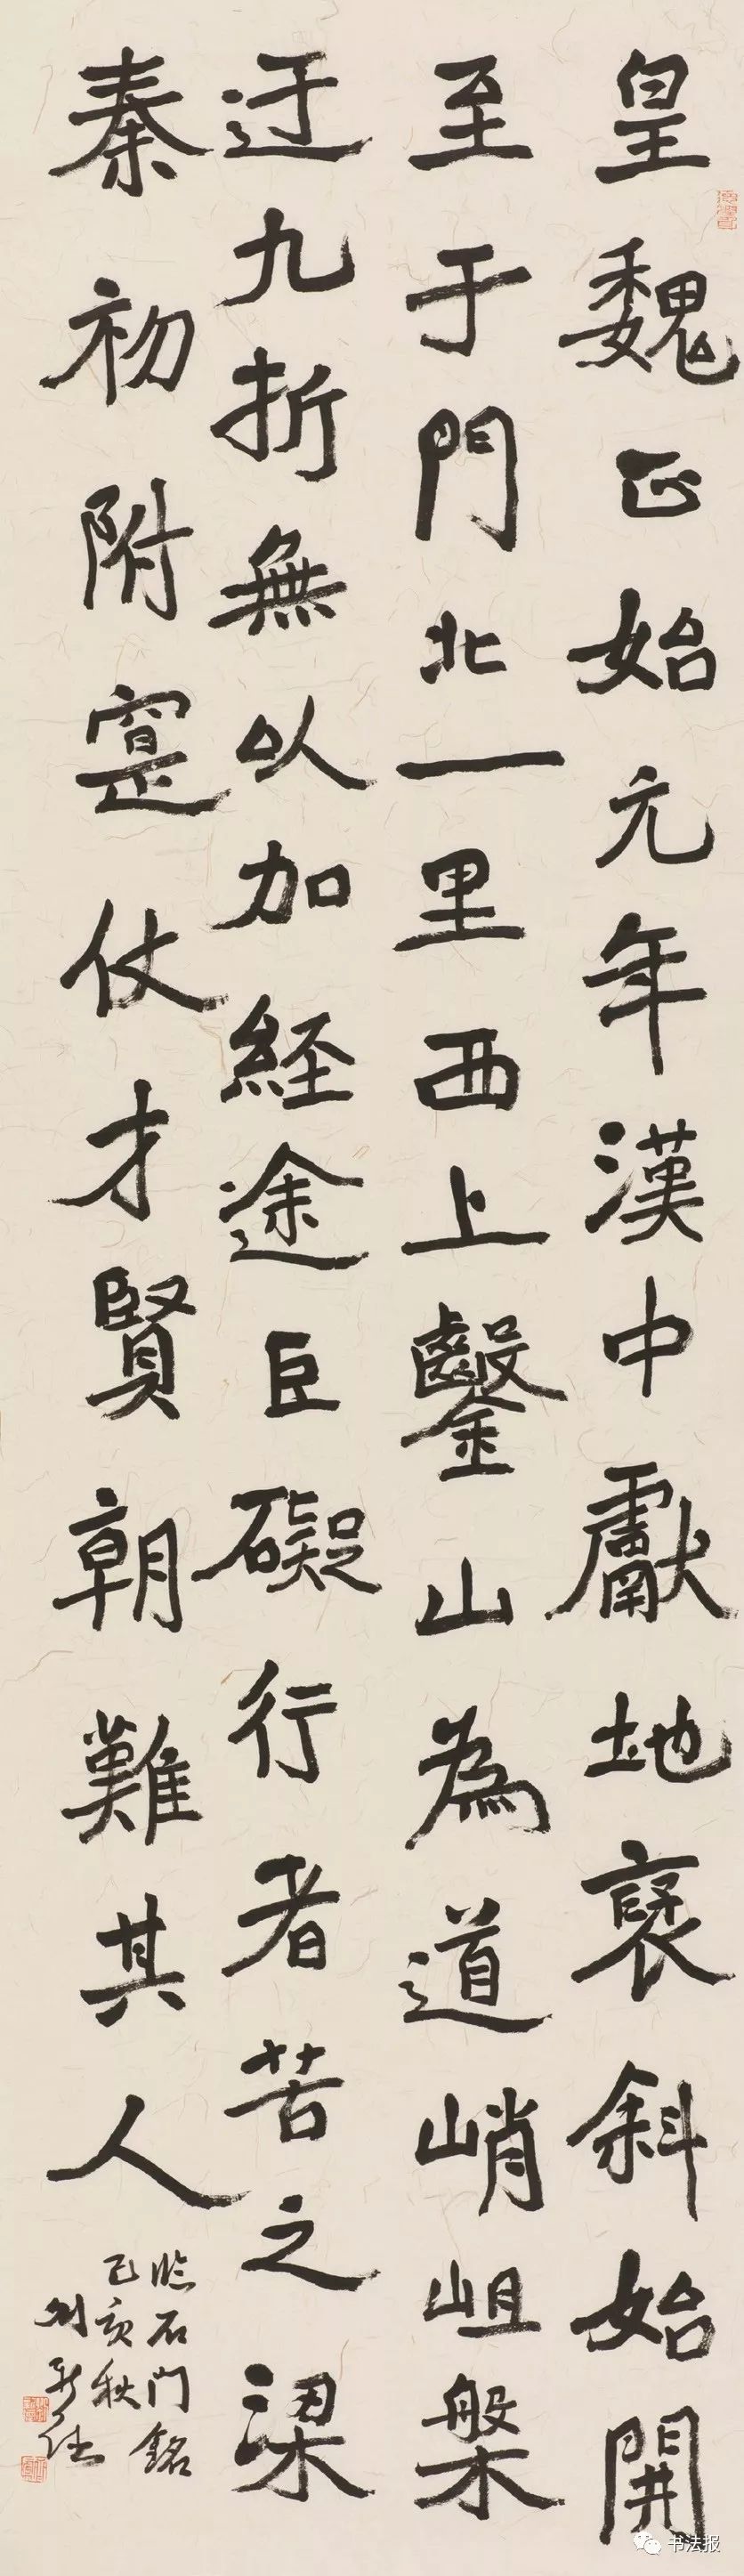 皇魏正始元年漢中獻地裦斜始開
至于門北一里西上鑿山為道峭岨槃
迂九折無以加經途巨礙行者苦之梁
秦初附寔仗才賢朝難其人
臨石門銘
己亥秋
劉
书法报